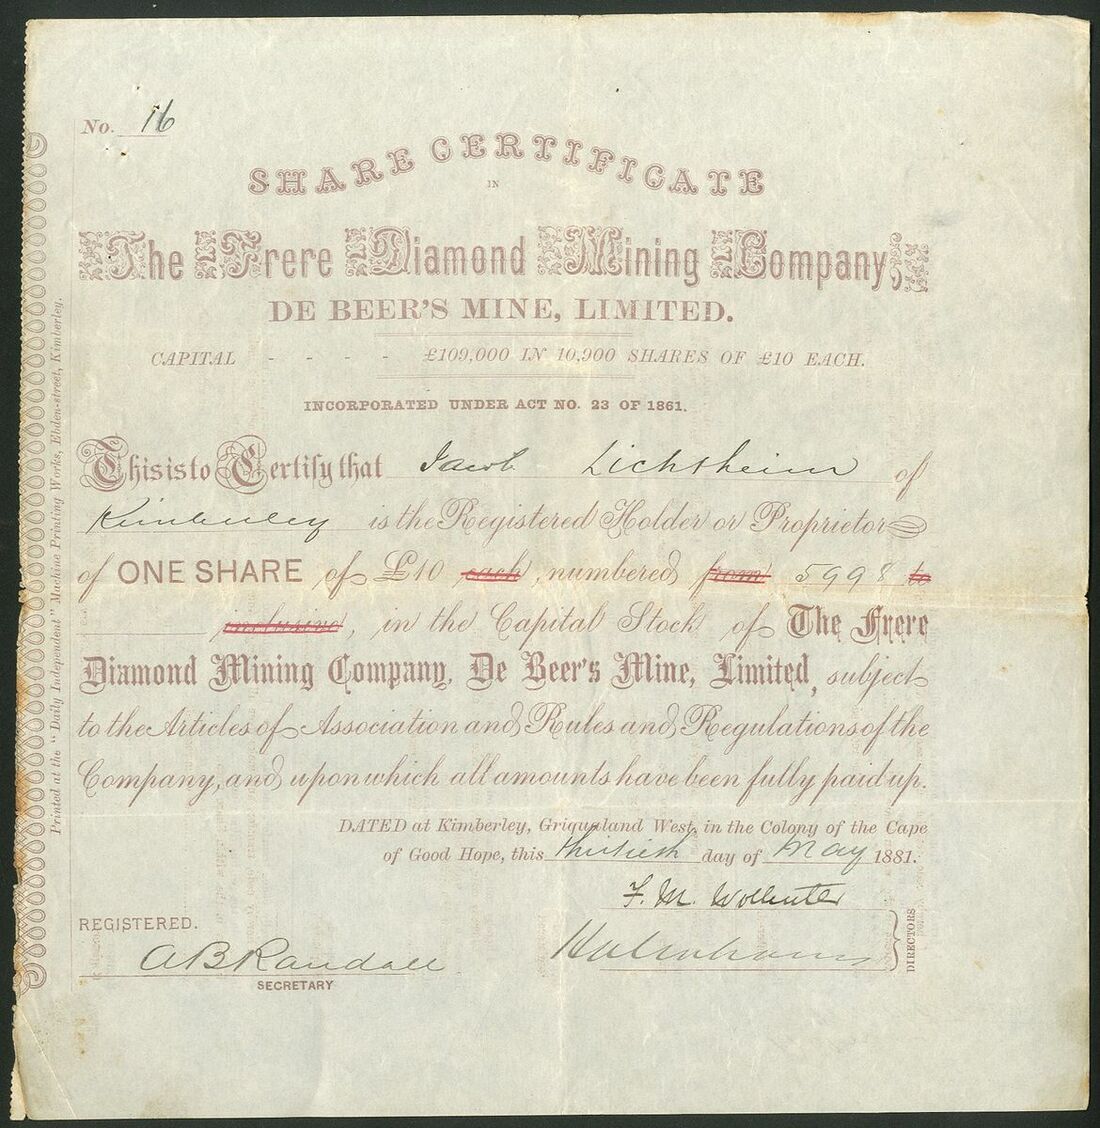 No. 16
SHARE CERTIFICATE
IN
The Frere Diamond Mining Company,
DE BEER'S MINE, LIMITED.
CAPITAL - - - - £109,000 IN 10,900 SHARES OF £10 EACH.
INCORPORATED UNDER ACT NO. 23 OF 1861.
This is to Certify that Jacob Lichtheim of
Kimberley is the Registered Holder or Proprietor
of ONE SHARE of £10 each, numbered from 5998 to
inclusive, in the Capital Stock of The Frere
Diamond Mining Company, De Beer's Mine, Limited, subject
to the Articles of Association and Rules and Regulations of the
Company, and upon which all amounts have been fully paid up.
DATED at Kimberley, Griqualand West, in the Colony of the Cape
of Good Hope, this thirtieth day of May 1881.
F. M.
REGISTERED.
AB Randall
SECRETARY
DIRECTORS
Printed at the "Daily Independent" Machine Printing Works, Ebden-street, Kimberley.